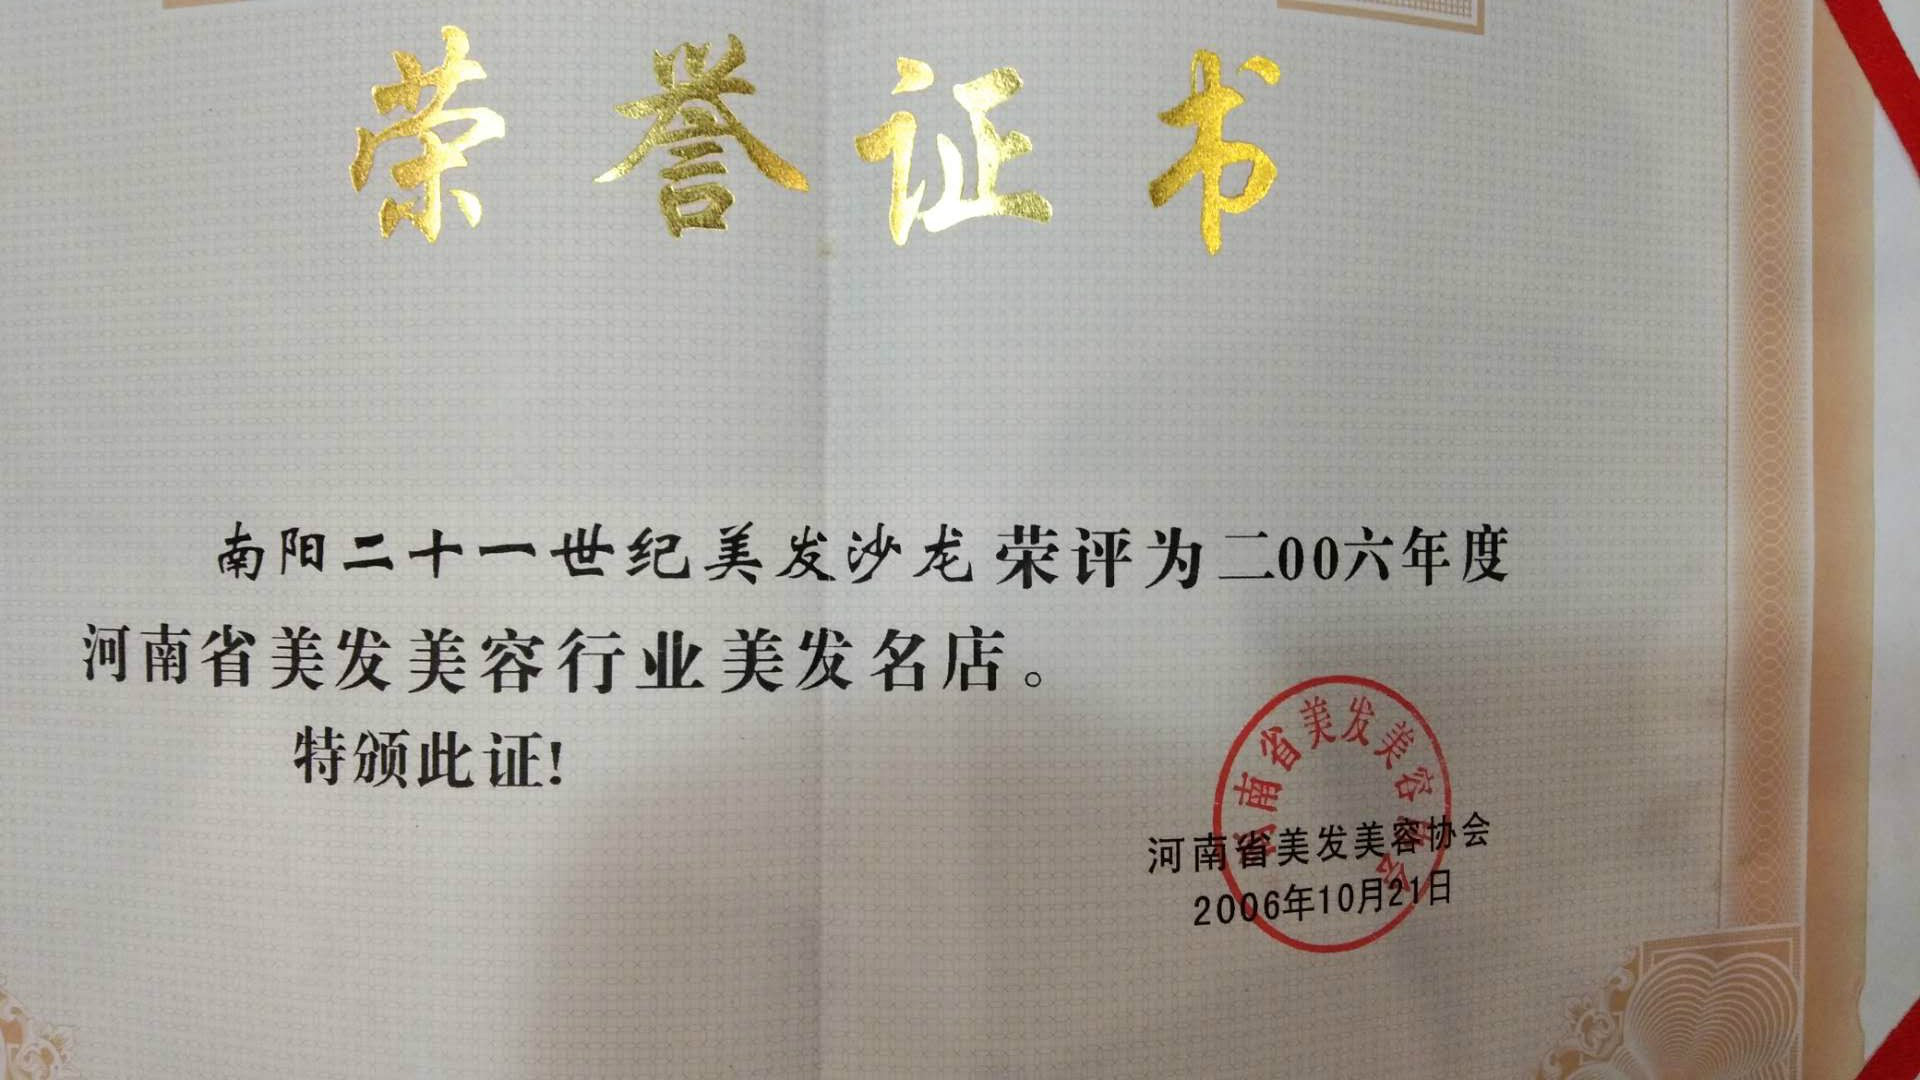 荣誉证书
南阳二十一世纪美发沙龙荣评为二00六年度
河南省美发美容行业美发名店。
特颁此证!
河南省美发美容协会
河南省美发美容协会
2006年10月21日